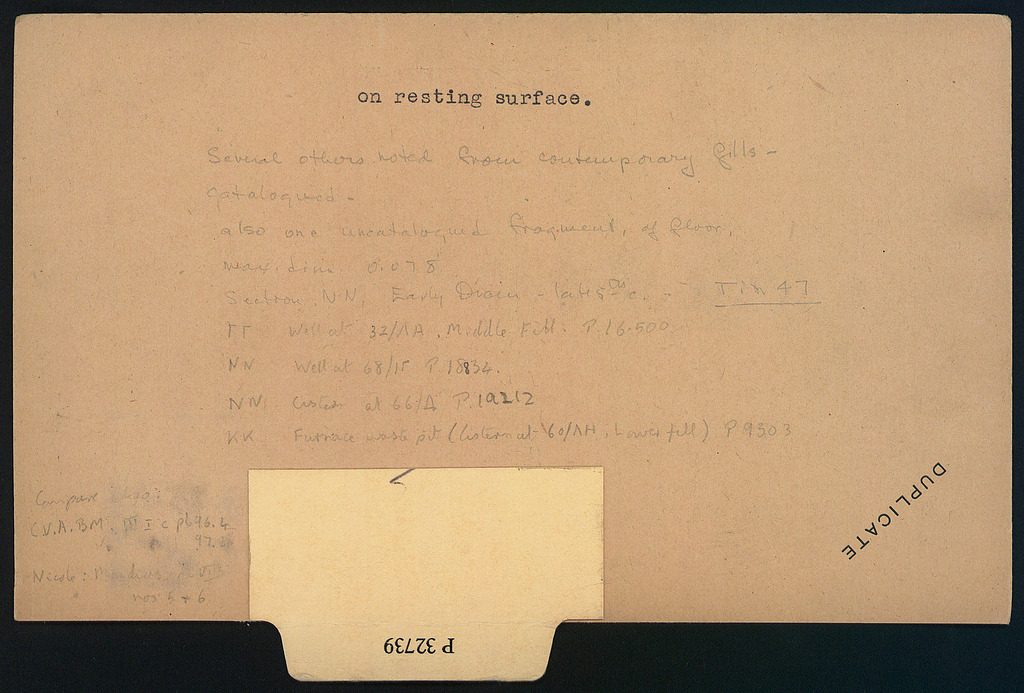 on resting surface.
Several others noted from contemporary fills -
catalogued -
also one uncatalogued fragment, of floor,
max. dim. 0.078
Section NN, Early Drain - late 5th c. -
TT Well at 32/ΛΑ, Middle Fill: P.16500
NN Well at 68/ P 18834.
NN Cistern at 66/Δ P.19212
KK Furnace waste pit (Cistern at 60/ΛΗ, Lower fill) P 9303
Compare
C.V.A. BM. III I c pl 96.4
97.
Nicole:
nos 5 + 6
DUPLICATE
P 32739